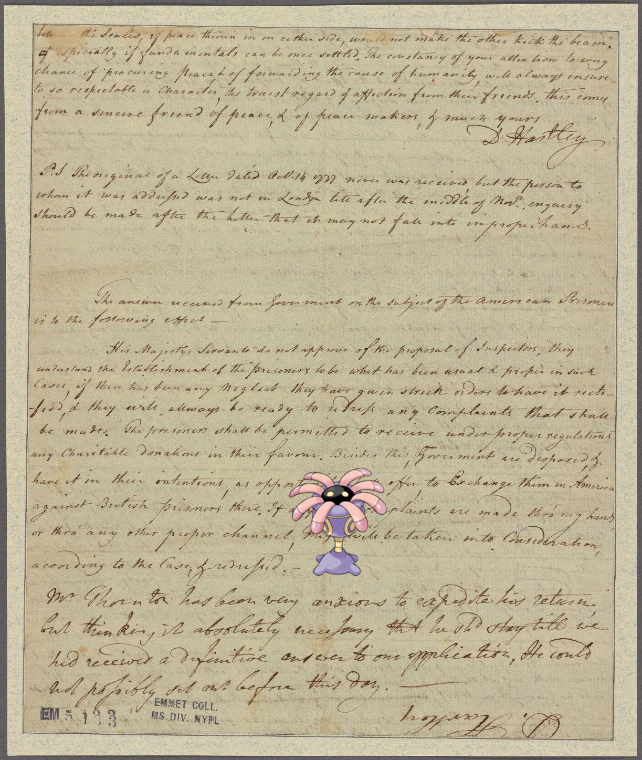 the Scales, if peace thrown in on either side, would not make the other kick the beam.
Especially if fundamentals can be once settled. The constancy of your attention to every
chance of procuring peace & of forwarding the cause of humanity will always ensure
to so respectable a Character, the truest regard & affection from their friends. this comes
from a sincere friend of peace, & of peace makers, & much yours
D Hartley
P.S The original of a Letter dated Octr. 14 1777 never was received, but the person to
whom it was addressed was not in London till after the middle of Novr. inquiry
should be made after the letter that it may not fall into improper hands.
The answer received from Goverment on the subject of the American Prisoners
is to the following effect —
His Majestys Servants do not approve of the proposal of Inspectors, they
understand the Establishment of the prisoners to be what has been usual & proper in such
Cases, if there has been any Neglect they have given strict orders to have it recti-
fied, & they will allways be ready to redress any Complaints that shall
be made. The prisoners shall be permitted to receive under proper regulations
any Charitable donations in their favour. Besides this Goverment are disposed, &
have it in their intentions, as offer to Exchange them in America
against British prisoners there. If plaints are made thro my hands
or thro any other proper channel, they will be taken into Consideration,
according to the Case, & redressed. —
Mr. Thornton has been very anxious to expedite his return,
but thinking it absolutely necessary that he shd stay till we
had received a definitive answer to our application, He could
not possibly set out before this day. —
D. Hartley
EM 5133
EMMET COLL.
MS. DIV. NYPL